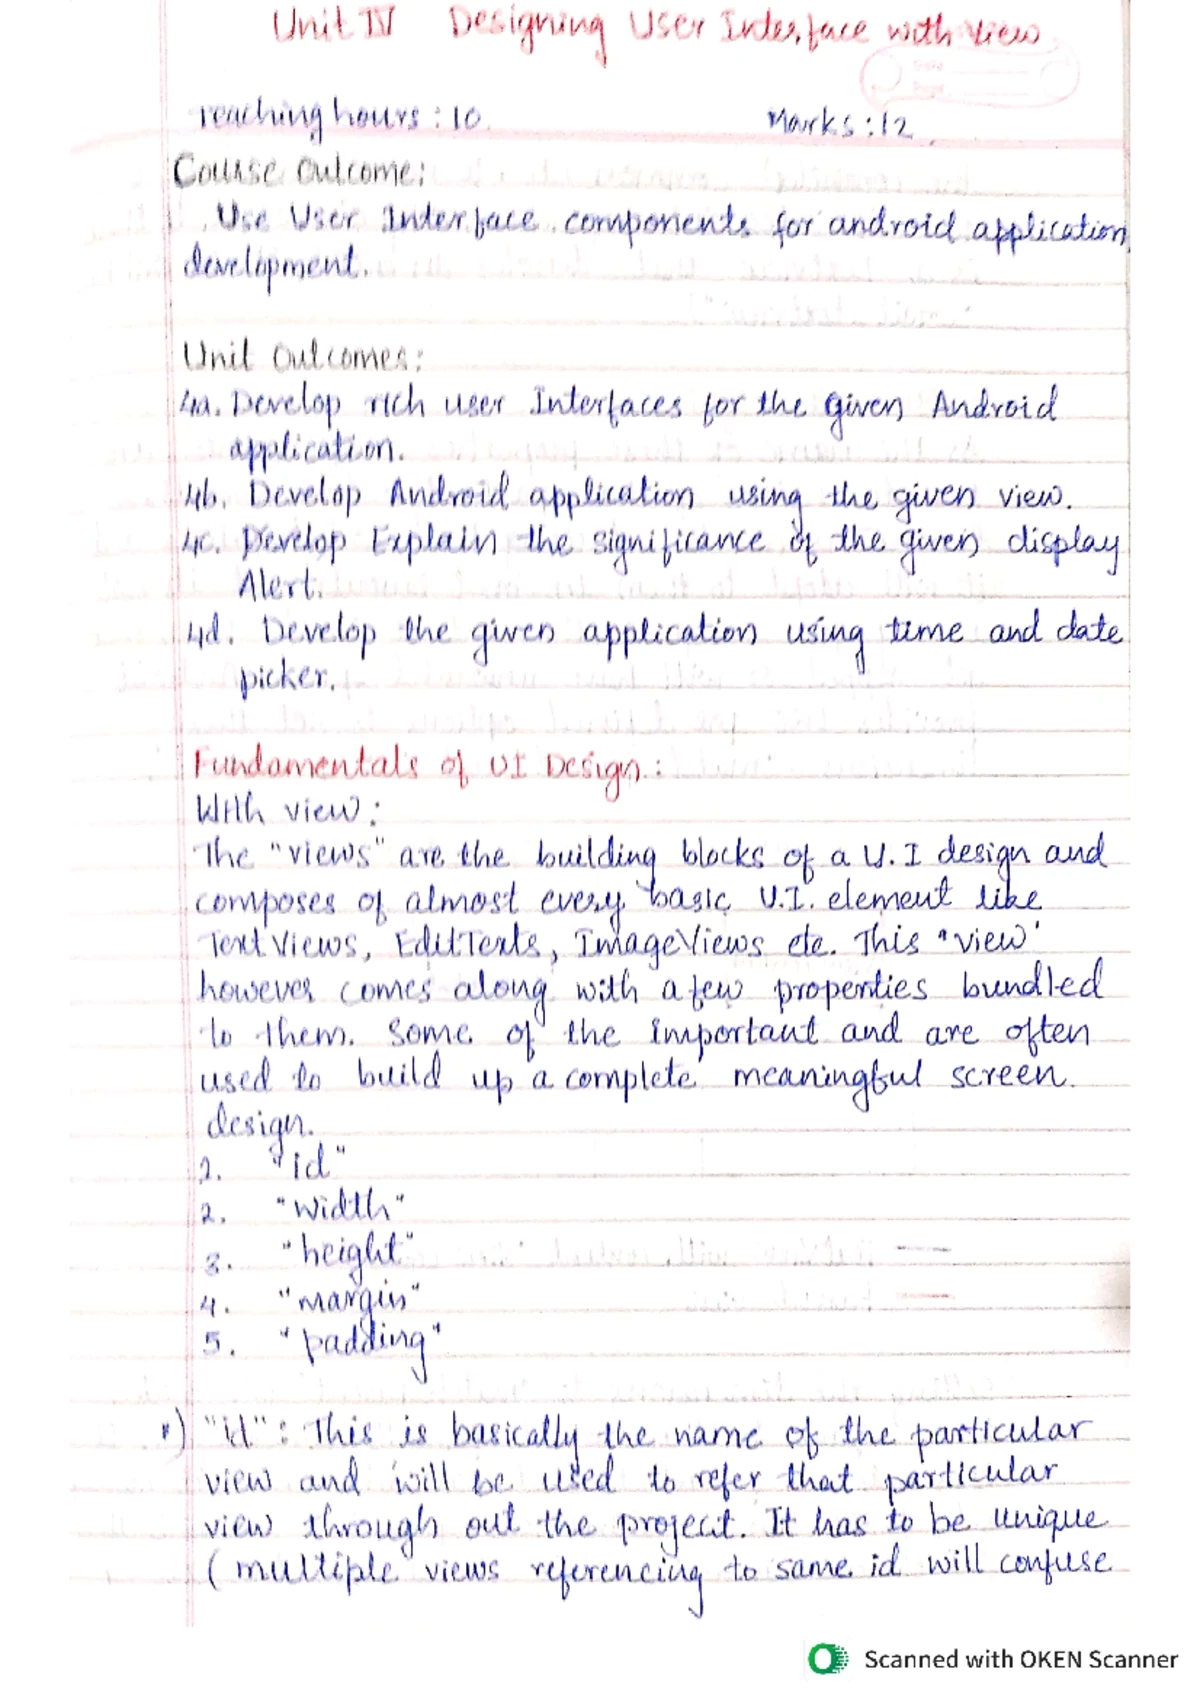 Unit IV Designing User Interface with View
Teaching hours : 10. Marks : 12
Course Outcome:
Use User Interface components for android application
development.
Unit Outcomes:
4a. Develop rich user Interfaces for the given Android
application.
4b. Develop Android application using the given view.
4c. Develop Explain the significance of the given display
Alert.
4d. Develop the given application using time and date
picker.
Fundamentals of UI Design :
With view :
The "views" are the building blocks of a U.I design and
composes of almost every basic U.I. element like
TextViews, EditTexts, ImageViews etc. This "view'
however comes along with a few properties bundled
to them. Some of the important and are often
used to build up a complete meaningful screen.
design.
1. "id"
2. "width"
3. "height"
4. "margin"
5. "padding"
1) "id" : This is basically the name of the particular
view and will be used to refer that particular
view through out the project. It has to be unique
(multiple views referencing to same id will confuse
Scanned with OKEN Scanner